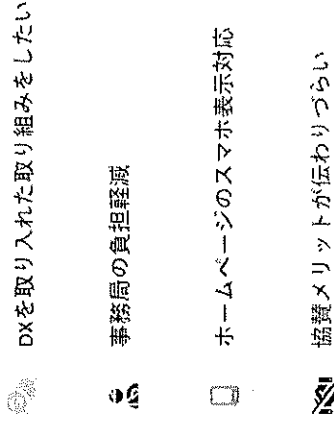 DXを取り入れた取り組みをしたい
事務局の負担軽減
ホームページのスマホ表示対応
協賛メリットが伝わりづらい